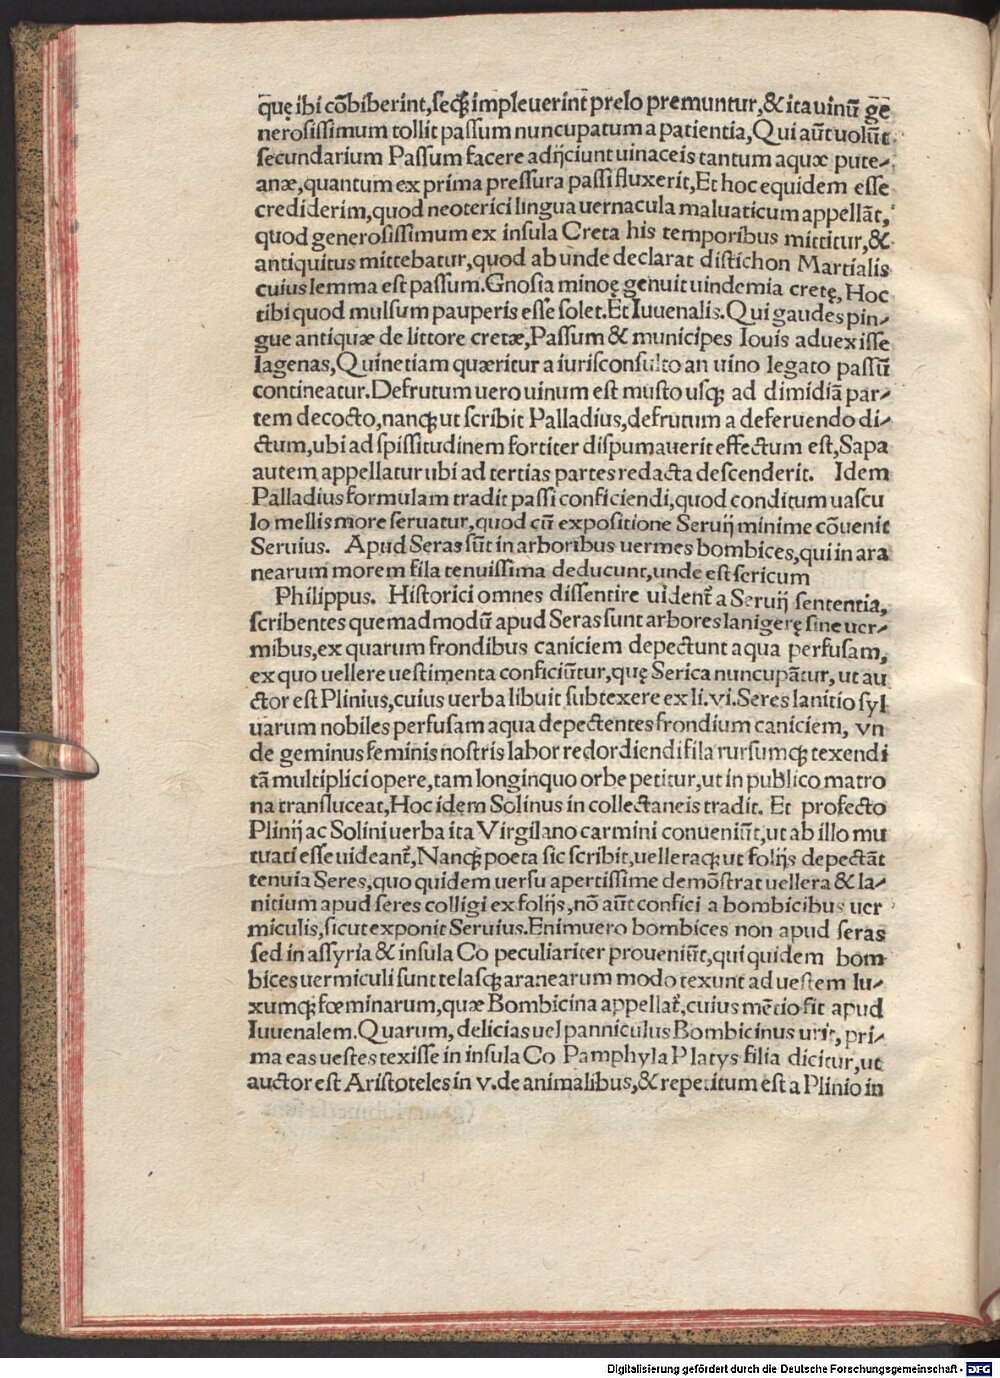 que̅ ibi cōbiberint,ſeqꝫ impleuerint prelo premuntur,&ita uinū ge̅
neroſiſſimum tollit paſſum nuncupatum a patientia,Qui aūt uolūt
ſecundarium Paſſum facere adijciunt uinaceis tantum aquæ pute⸗
anæ,quantum ex prima preſſura paſſi fluxerit,Et hoc equidem eſſe
crediderim,quod neoterici lingua uernacula maluaticum appellāt,
quod generoſiſſimum ex inſula Creta his temporibus mittitur,&
antiquitus mittebatur,quod abunde declarat diſtichon Martialis
cuius lemma eſt paſſum.Gnoſia minoę genuit uindemia cretę,Hoc
tibi quod mulſum pauperis eſſe ſolet.Et Iuuenalis.Qui gaudes pin⸗
gue antiquæ de littore cretæ,Paſſum & municipes Iouis aduexiſſe
lagenas,Quinetiam quæritur a iuriſconſulto an uino legato paſſū
contineatur.Defrutum uero uinum eſt muſto uſqꝫ ad dimidiā par⸗
tem decocto,nanqꝫ ut ſcribit Palladius,defrutum a deferuendo di⸗
ctum,ubi ad ſpiſſitudinem fortiter diſpumauerit effectum eſt,Sapa
autem appellatur ubi ad tertias partes redacta deſcenderit. Idem
Palladius formulam tradit paſſi conficiendi,quod conditum uaſcu
lo mellis more ſeruatur,quod cū expoſitione Seruij minime cōuenit
Seruius. Apud Seras ſūt in arboribus uermes bombices,qui in ara
nearum morem fila tenuiſſima deducunt,unde eſt ſericum
Philippus. Hiſtorici omnes diſſentire uident̄ a Seruij ſententia,
ſcribentes quemadmodū apud Seras ſunt arbores lanigerę ſine uer⸗
mibus,ex quarum frondibus caniciem depectunt aqua perfuſam,
ex quo uellere ueſtimenta conficiūtur,quę Serica nuncupātur, ut au
ctor eſt Plinius,cuius uerba libuit ſubtexere ex li.vi.Seres lanitio ſyl
uarum nobiles perfuſam aqua depectentes frondium caniciem, vn
de geminus feminis noſtris labor redordiendi fila rurſumqꝫ texendi
tā multiplici opere,tam longinquo orbe petitur,ut in publico matro
na tranſluceat,Hoc idem Solinus in collectaneis tradit. Et profecto
Plinij ac Solini uerba ita Virgilano carmini conueniūt,ut ab illo mu
tuati eſſe uideant̄,Nanqꝫ poeta ſic ſcribit,uelleraqꝫ ut folijs depectāt
tenuia Seres,quo quidem uerſu apertiſſime demōſtrat uellera & la⸗
nitium apud ſeres colligi ex folijs,nō aūt confici a bombicibus uer
miculis,ſicut exponit Seruius.Enimuero bombices non apud ſeras
ſed in aſſyria & inſula Co peculiariter proueniūt,qui quidem bom
bices uermiculi ſunt telaſqꝫ aranearum modo texunt ad ueſtem lu⸗
xumqꝫ fœminarum,quæ Bombicina appellat̄,cuius mētio fit apud
Iuuenalem.Quarum, delicias uel panniculus Bombicinus urit, pri⸗
ma eas ueſtes texiſſe in inſula Co Pamphyla Platys filia dicitur,ut
auctor eſt Ariſtoteles in v.de animalibus,& repetitum eſt a Plinio in
Digitalisierung gefördert durch die Deutsche Forschungsgemeinschaft - DFG